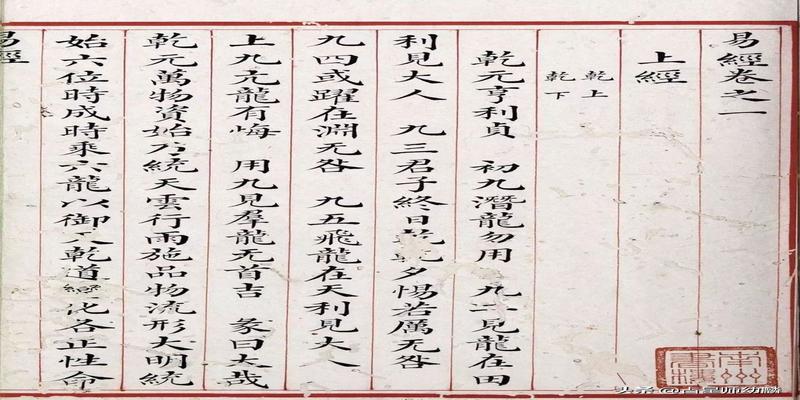 易經卷之一
上經
乾上
乾下
乾元亨利貞　初九潛龍勿用　九二見龍在田
利見大人　九三君子終日乾乾夕惕若厲无咎
九四或躍在淵无咎　九五飛龍在天利見大人
上九亢龍有悔　用九見羣龍无首吉　彖曰大哉
乾元萬物資始乃統天雲行雨施品物流形大明終
始六位時成時乘六龍以御天乾道變化各正性命
易經
南州書樓